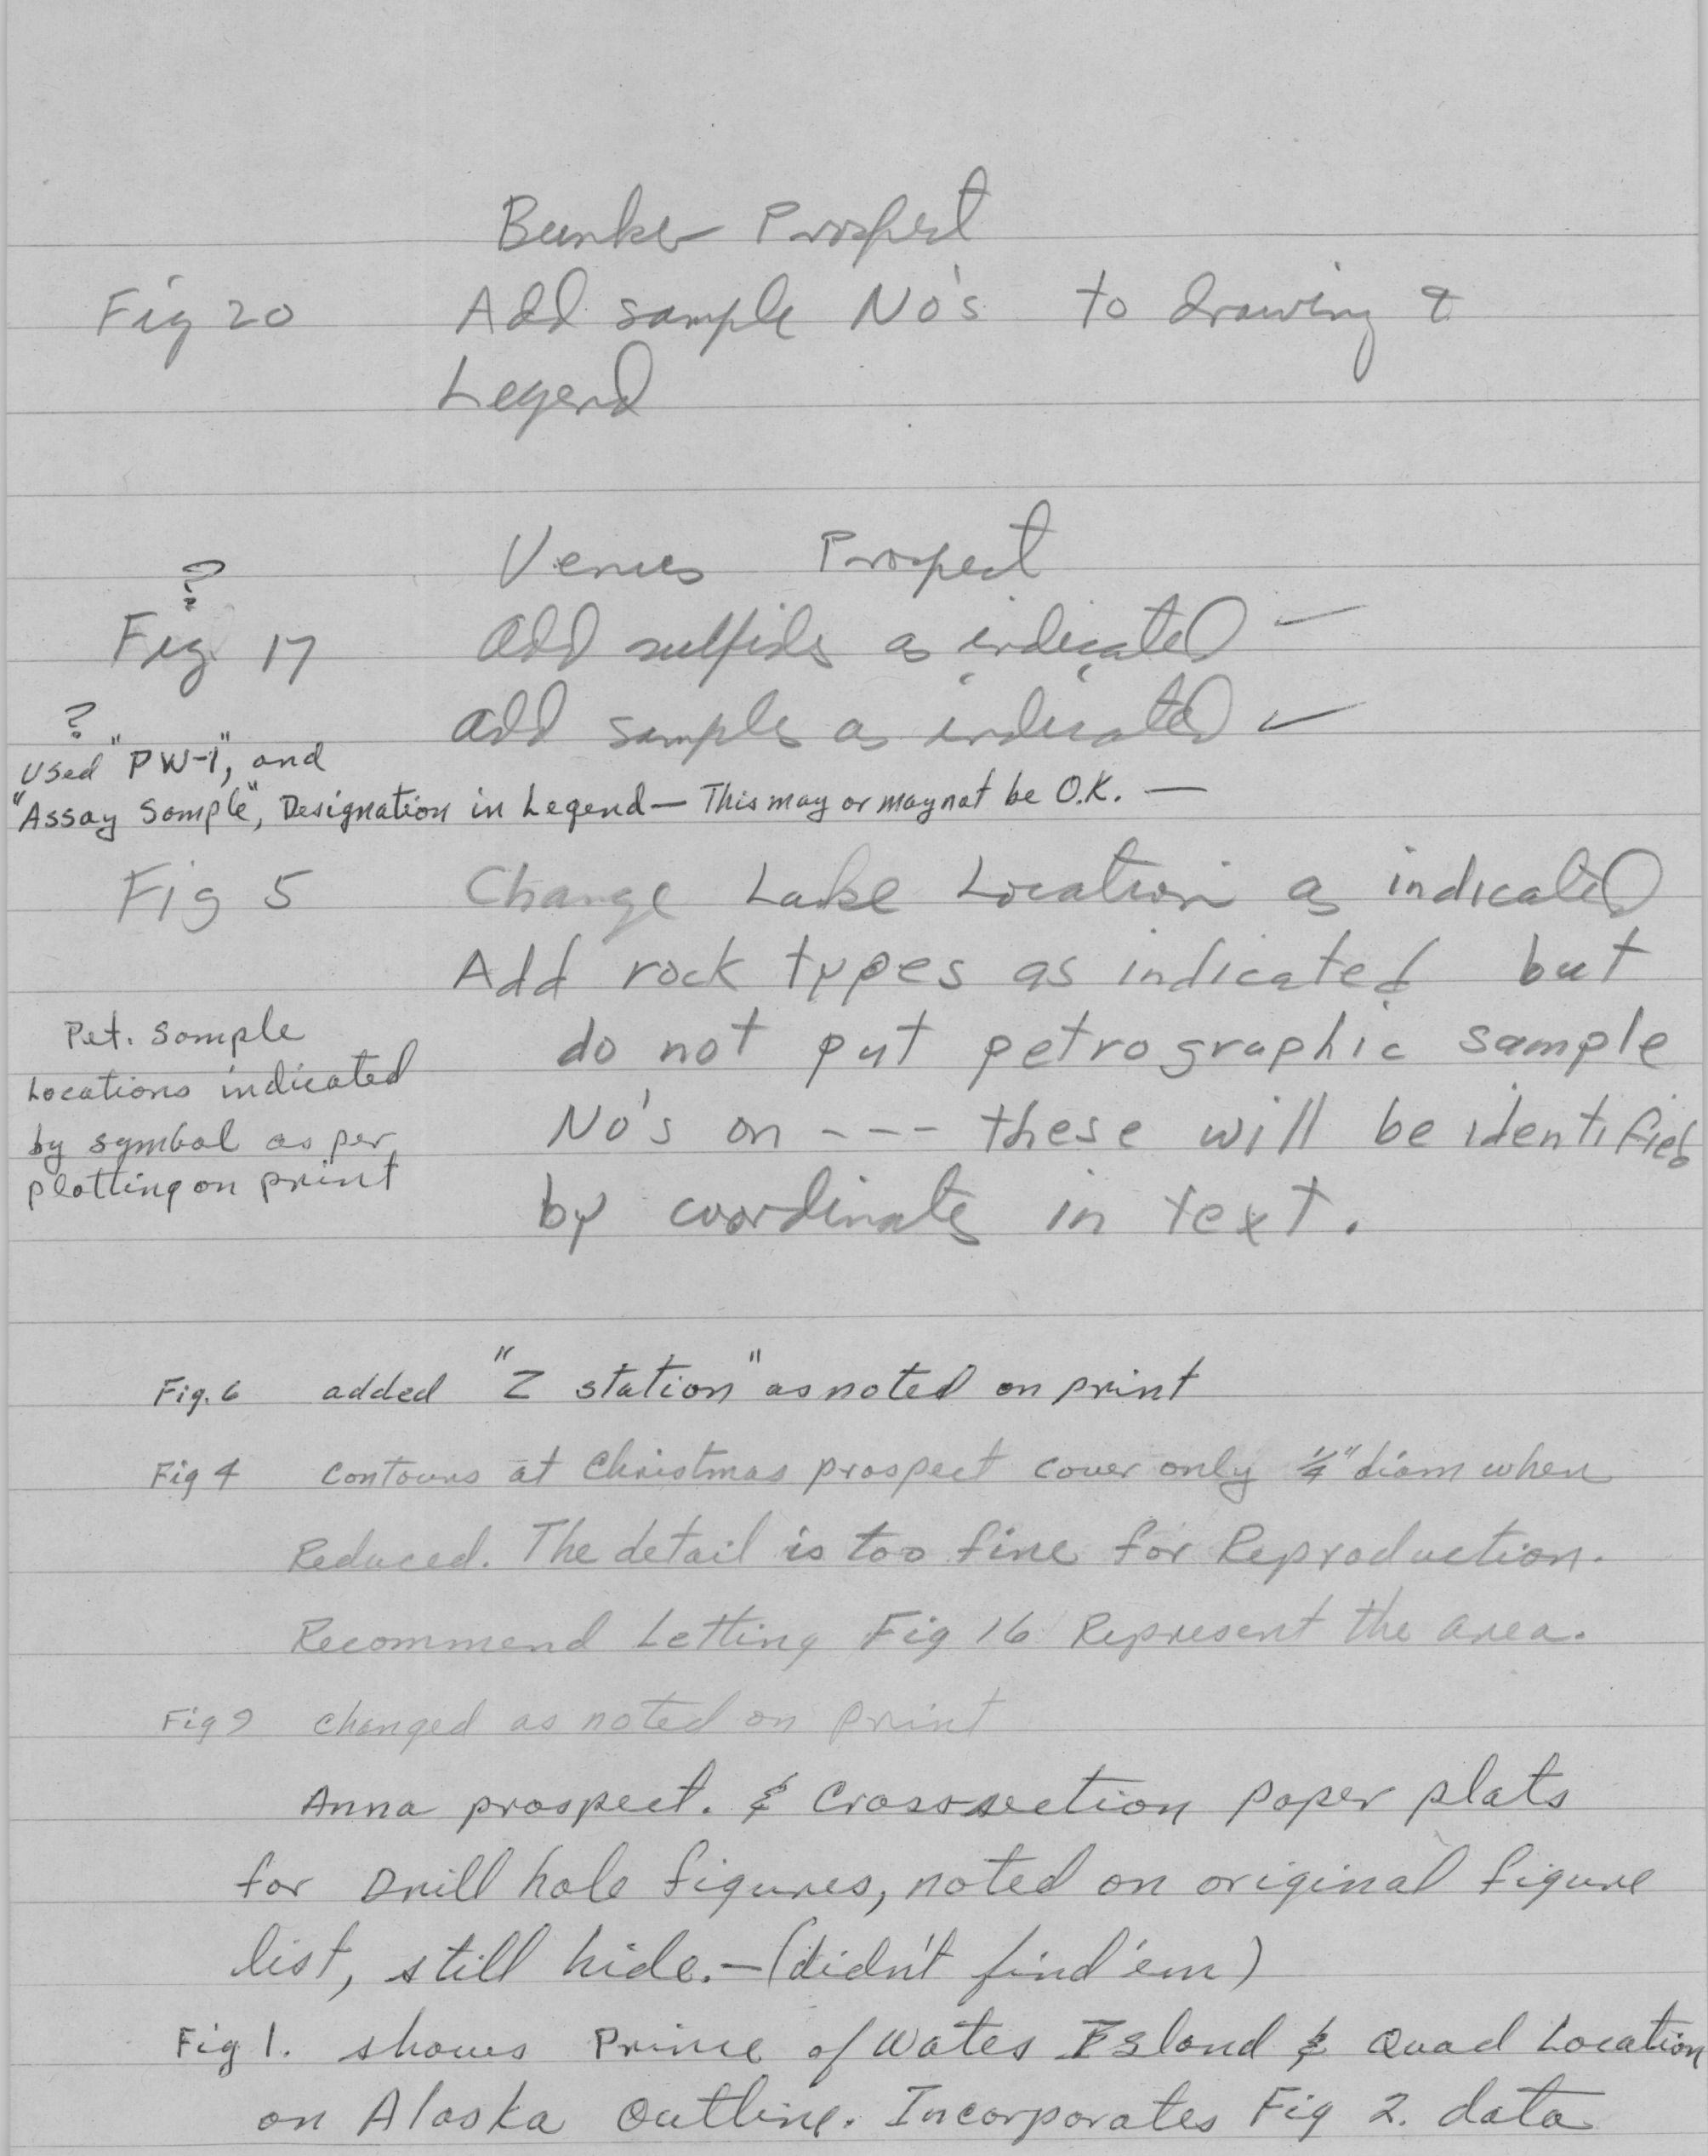 Bunker Prospect
Fig 20 Add sample No's to drawing &
Legend
Venus Prospect
?
Fig 17 Add sulfides as indicated —
add samples as indicated ✓
?
Used "PW-1", and
"Assay Sample", Designation in Legend — This may or may not be O.K. —
Fig 5 Change Lake Location as indicated
Add rock types as indicated but
do not put petrographic sample
No's on --- these will be identified
by coordinates in text.
Pet. Sample
Locations indicated
by symbol as per
plotting on print
Fig. 6 added "Z station" as noted on print
Fig 4 contours at Christmas prospect cover only 1/4" diam when
Reduced. The detail is too fine for Reproduction.
Recommend Letting Fig 16 Represent the area.
Fig 9 changed as noted on print
Anna prospect. & Crosssection paper plats
for Drill hole figures, noted on original figure
list, still hide. — (didn't find 'em)
Fig 1. shows Prince of Wales Island & Quad Location
on Alaska Outline. Incorporates Fig 2. data